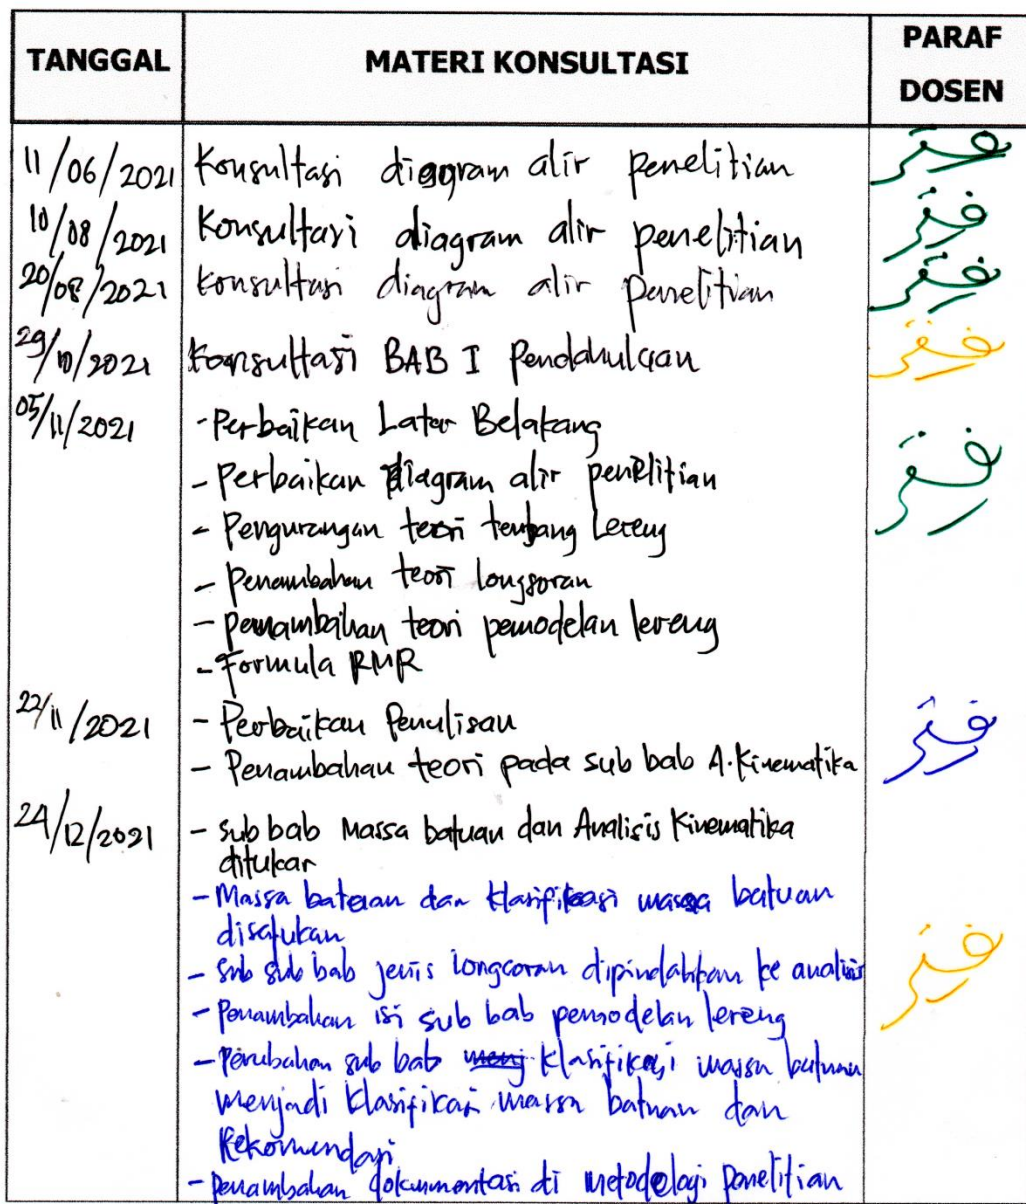 TANGGAL MATERI KONSULTASI PARAF DOSEN
11/06/2021 Konsultasi diagram alir penelitian
10/08/2021 Konsultasi diagram alir penelitian
20/08/2021 Konsultasi diagram alir penelitian
29/10/2021 Konsultasi BAB I Pendahuluan
05/11/2021 - Perbaikan Latar Belakang
- Perbaikan diagram alir penelitian
- Pengurangan teori tentang Lereng
- Penambahan teori longsoran
- penambahan teori pemodelan lereng
- Formula RMR
22/11/2021 - Perbaikan Penulisan
- Penambahan teori pada sub bab A. Kinematika
24/12/2021 - sub bab Massa batuan dan Analisis Kinematika
ditukar
- Massa batuan dan klasifikasi massa batuan
disatukan
- Sub sub bab jenis longsoran dipindahkan ke analisis
- Penambahan isi sub bab pemodelan lereng
- Perubahan sub bab klasifikasi massa batuan
menjadi klasifikasi massa batuan dan
Rekomendasi
- penambahan dokumentasi di metodologi penelitian